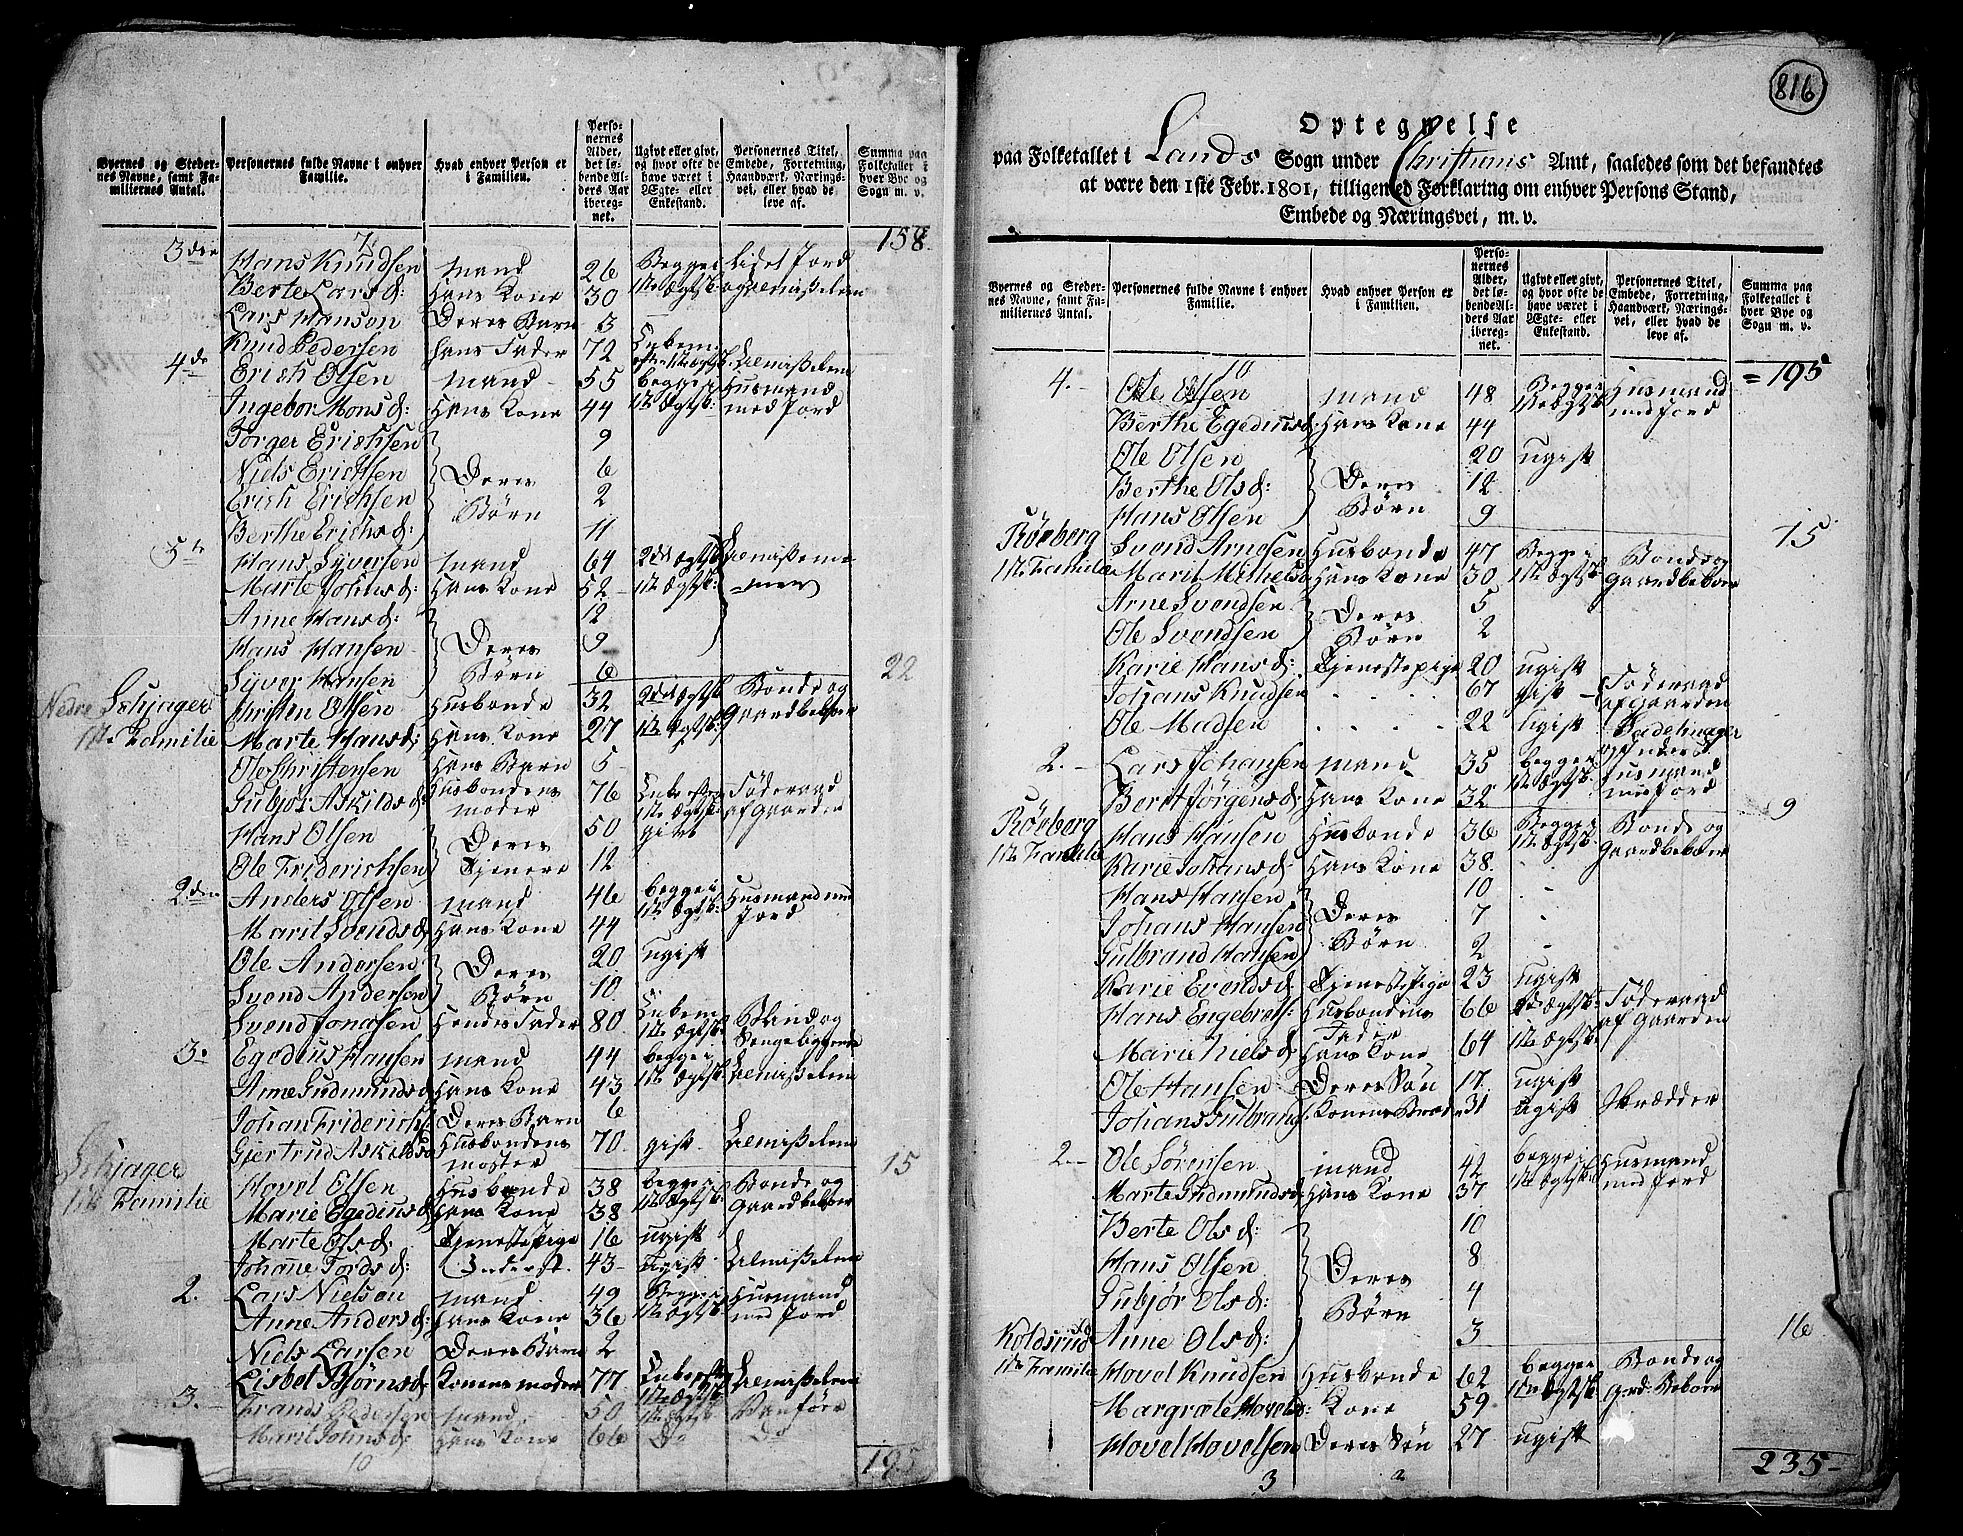 Byernes og Steder-
nes Navne, samt Fa-
miliernes Antal.
Personernes fulde Navne i enhver
Familie.
Hvad enhver Person er
i Familien.
Perso-
nernes
Alder,
det lø-
bende Al-
ders Aar
ibereg-
net.
Ugivt eller givt,
og hvor ofte de
have været i
Ægte- eller
Enkestand.
Personernes Titel,
Embede, Forretning,
Haandværk, Nærings-
vei, eller hvad de
leve af.
Summa paa
Folketallet i
hver Bye og
Sogn m. v.
158
3die Hans Knudsen mand 26 Begge i lidet Jord
Berte Lars d: Hans Kone 30 1te Ægtsk: og
Lars Hanson Deres Barn 3
Knud Pedersen Hans Fader 72
4de Erich Olsen mand 55 begge i Husmand
Ingebor Mons d: Hans Kone 44 1te Ægtsk: med Jord
Torger Erichsen 9
Niels Erichsen Deres 6
Erich Erichsen Børn 2
Berthe Erichs d: 11
5te Hans Syversen mand 64 2det Ægtsk
Marte Johns d: Hans Kone 52 1te Ægtsk:
Anne Hans d: 12
Hans Hansen Deres 9
Syver Hansen Børn 6 22
Nedre
Christen Olsen Husbonde 32 2det Ægtsk Bonde og
1te Familie Marte Hans d: Hans Kone 27 1te Ægtsk: Gaardbeboer
Ole Christensen Hans Barn 5
Gubjør Askilds d: Husbondens 76 Føderaad
moder 1te Ægtsk: af Gaarden
Hans Olsen Deres 50 givt
Ole Friderichsen Tjenere 12
2den Anders Olsen mand 46 begge i Husmand med
Marit Svends d: Hans Kone 44 1te Ægtsk: Jord
Ole Andersen Deres 20 ugift
Svend Andersen Børn 10
Svend Jonassen Hendes Fader 80 1te Ægtsk: Blind og
3. Egedius Hansen mand 44 begge i
Anne Gudmunds d Hans Kone 43 1te Ægtsk:
Johan Friderichs Deres Barn 6
Gjertrud Askilds d Husbondens 70 gift
moster 15
1te Familie
Hovel Olsen Husbonde 38 begge i Bonde og
Marie Egedius d Hans Kone 38 1te Ægtsk: Gaardbeboer
Marte Ols d: Tjenestepige 16 ugift
Johane Tords d: Inderst 43 ugift
2. Lars Nielsen mand 49 Begge i Husmand
Anne Anders d: Hans Kone 36 1te Ægtsk: med Jord
Niels Larsen Deres Barn 2
Lisbet Bjørns d: Konens moder 77
3. Frands Pedersen mand 50 1te Ægtsk
Marit Johns d: Hans Kone 66 Do Do
10
195
816
Optegnelse
paa Folketallet i Lands Sogn under Christians Amt, saaledes som det befandtes
at være den 1ste Febr. 1801, tilligemed Forklaring om enhver Persons Stand,
Embede og Næringsvei, m. v.
Byernes og Steder-
nes Navne, samt Fa-
miliernes Antal.
Personernes fulde Navne i enhver
Familie.
Hvad enhver Person er
i Familien.
Perso-
nernes
Alder,
det lø-
bende Al-
ders Aar
ibereg-
net.
Ugivt eller givt,
og hvor ofte de
have været i
Ægte- eller
Enkestand.
Personernes Titel,
Embede, Forretning,
Haandværk, Nærings-
vei, eller hvad de
leve af.
Summa paa
Folketallet i
hver Bye og
Sogn m. v.
= 195
10
4. Ole Olsen mand 48 Begge i Husmand
Berthe Egedius d: Hans Kone 44 1te Ægtsk med Jord
Ole Olsen 20 ugift
Berthe Ols d: Deres 12
Hans Olsen Børn 9 15
Röeberg Svend Arnesen Husbonde 47 Begge i Bonde og
1te Familie Marit Michels d Hans Kone 30 1te Ægtsk: Gaardbeboer
Arne Svendsen Deres 5
Ole Svendsen Børn 2
Karie Hans d: Tjenestepige 20 ugift
Johans Knudsen 67 gift Føderaad
af Gaarden
Ole Madsen 22 ugift Sadelmager
2. Lars Johansen mand 35 begge i Husmand
Berit Jörgens d: Hans Kone 32 1te Ægtsk: med Jord 9
Röeberg Hans Hansen Husbonde 36 Begge i Bonde og
1te Familie Karie Johans d: Hans Kone 38 1te Ægtsk: Gaardbeboer
Hans Hansen 10
Johans Hansen Deres 7
Gulbrand Hansen Børn 2
Karie Evends d Tjenestepige 23 ugift
Hans Engebretsen Husbondens 66 2det Ægtsk: Føderaad
Fader af Gaarden
Marie Niels d: Hans Kone 64 1te Ægtsk:
Ole Hansen Deres Søn 17 ugift
Johans Gulbrands Konens Broder 31 ugift Skrædder
2. Ole Sørensen mand 42 begge i Husmand
Marte Gudmunds d Hans Kone 37 1te Ægtsk: med Jord
Berte Ols d: 10
Hans Olsen Deres 8
Gubjör Ols d: Børn 4
Anne Ols d: 3 16
Koldsrud
1te Familie Hovel Knudsen Husbonde 62 begge i Bonde og
Margrete Hovels d: Kone 59 1te Ægtsk: Grd: Beboer
Hovel Hovelsen Deres Søn 27 ugift
3 2
235